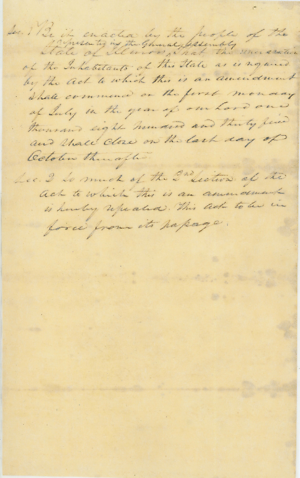 Sec. 1st Be it enacted by the people of the
represented in the General Assembly
State of Illinois, that the enumeration
of the Inhabitants of this State as required
by the Act to which this is an amendment
shall commence on the first monday
of July in the year of our Lord one
thousand eight hundred and thirty five
and shall close on the last day of
October thereafter
Sec. 2 So much of the 2nd section of the
Act to which this is an amendment
is hereby repealed. this Act to be in
force from its passage.